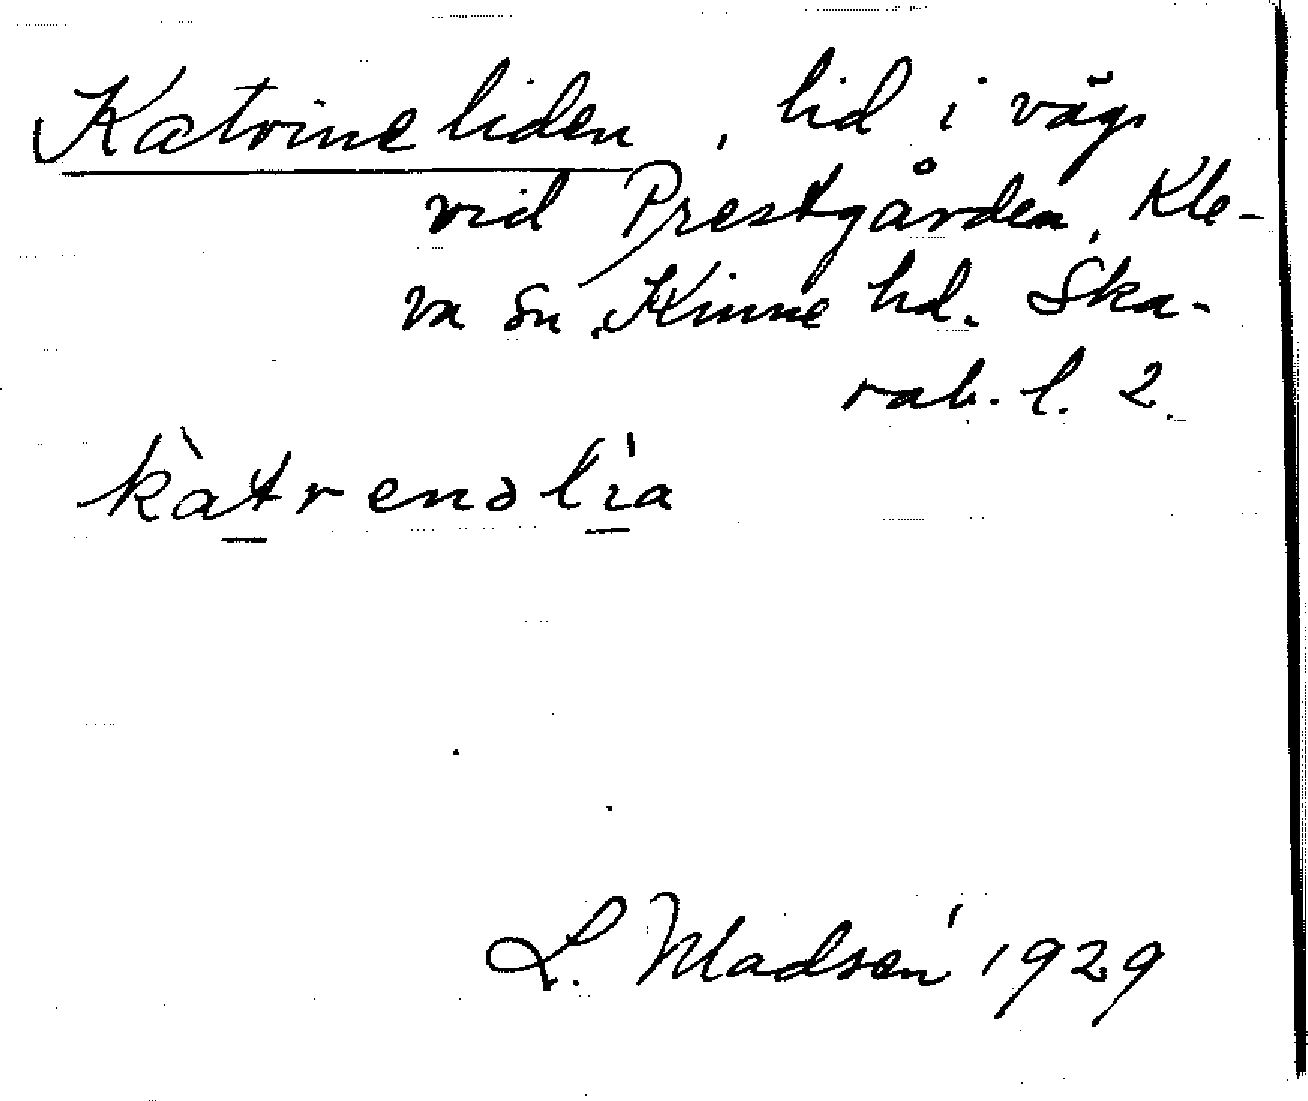 Katrineliden, lid i väg
vid Prestgården, Kle-
va sn, Kinne hd. Ska-
rab. l. 2.
kàtrenəlía
L. Madsén 1929